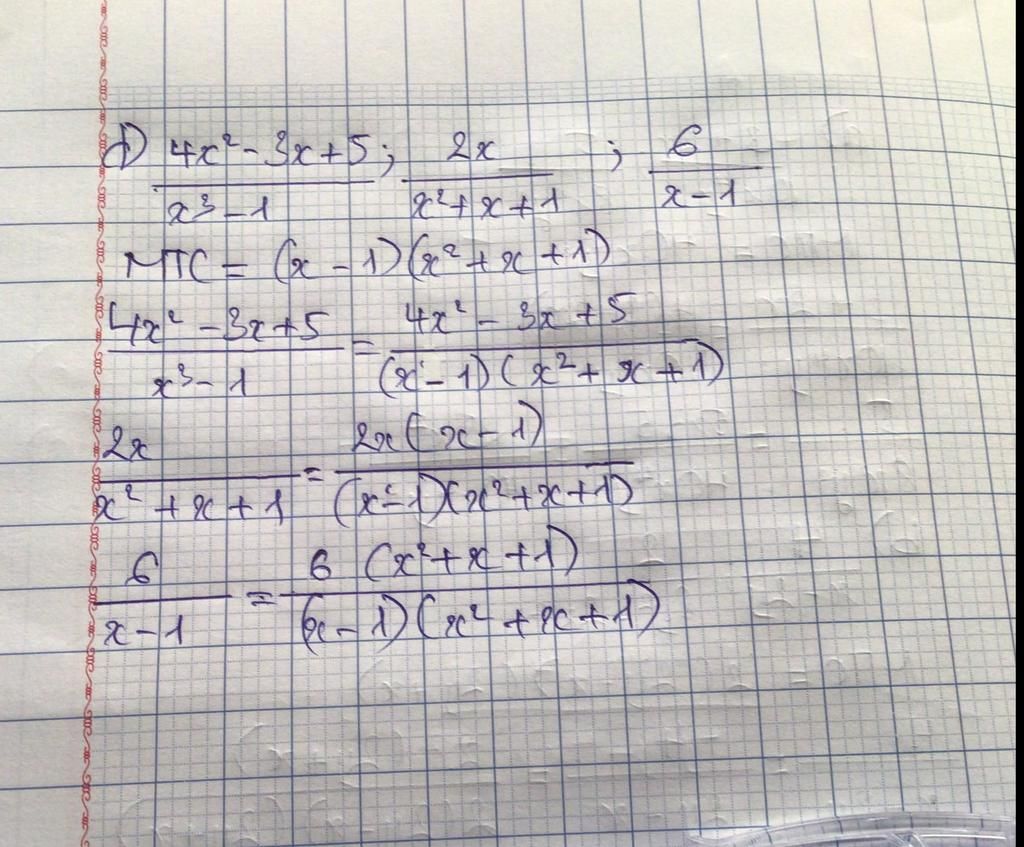 d) (4x² - 3x + 5)/(x³ - 1) ; 2x/(x² + x + 1) ; 6/(x - 1)
MTC = (x - 1)(x² + x + 1)
(4x² - 3x + 5)/(x³ - 1) = (4x² - 3x + 5)/((x - 1)(x² + x + 1))
2x/(x² + x + 1) = 2x(x - 1)/((x - 1)(x² + x + 1))
6/(x - 1) = 6 (x² + x + 1)/((x - 1)(x² + x + 1))